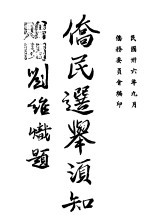 民國卅六年九月
僑務委員會編印
僑民選舉須知
劉維熾題